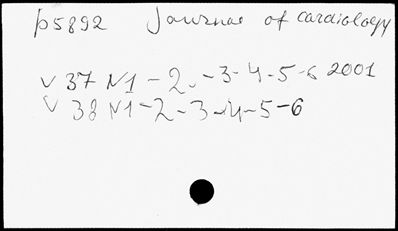 p5892 Journal of cardiology
v 37 N1-2-3-4-5-6 2001
v 38 N1-2-3-4-5-6